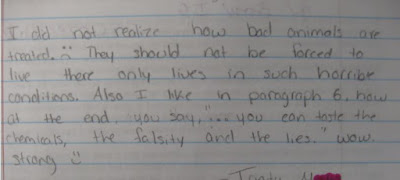 I did not realize how bad animals are
treated. :( They should not be forced to
live there only lives in such horrible
conditions. Also I like in paragraph 6, how
at the end, you say, "... you can taste the
chemicals, the falsity and the lies." wow.
strong :)